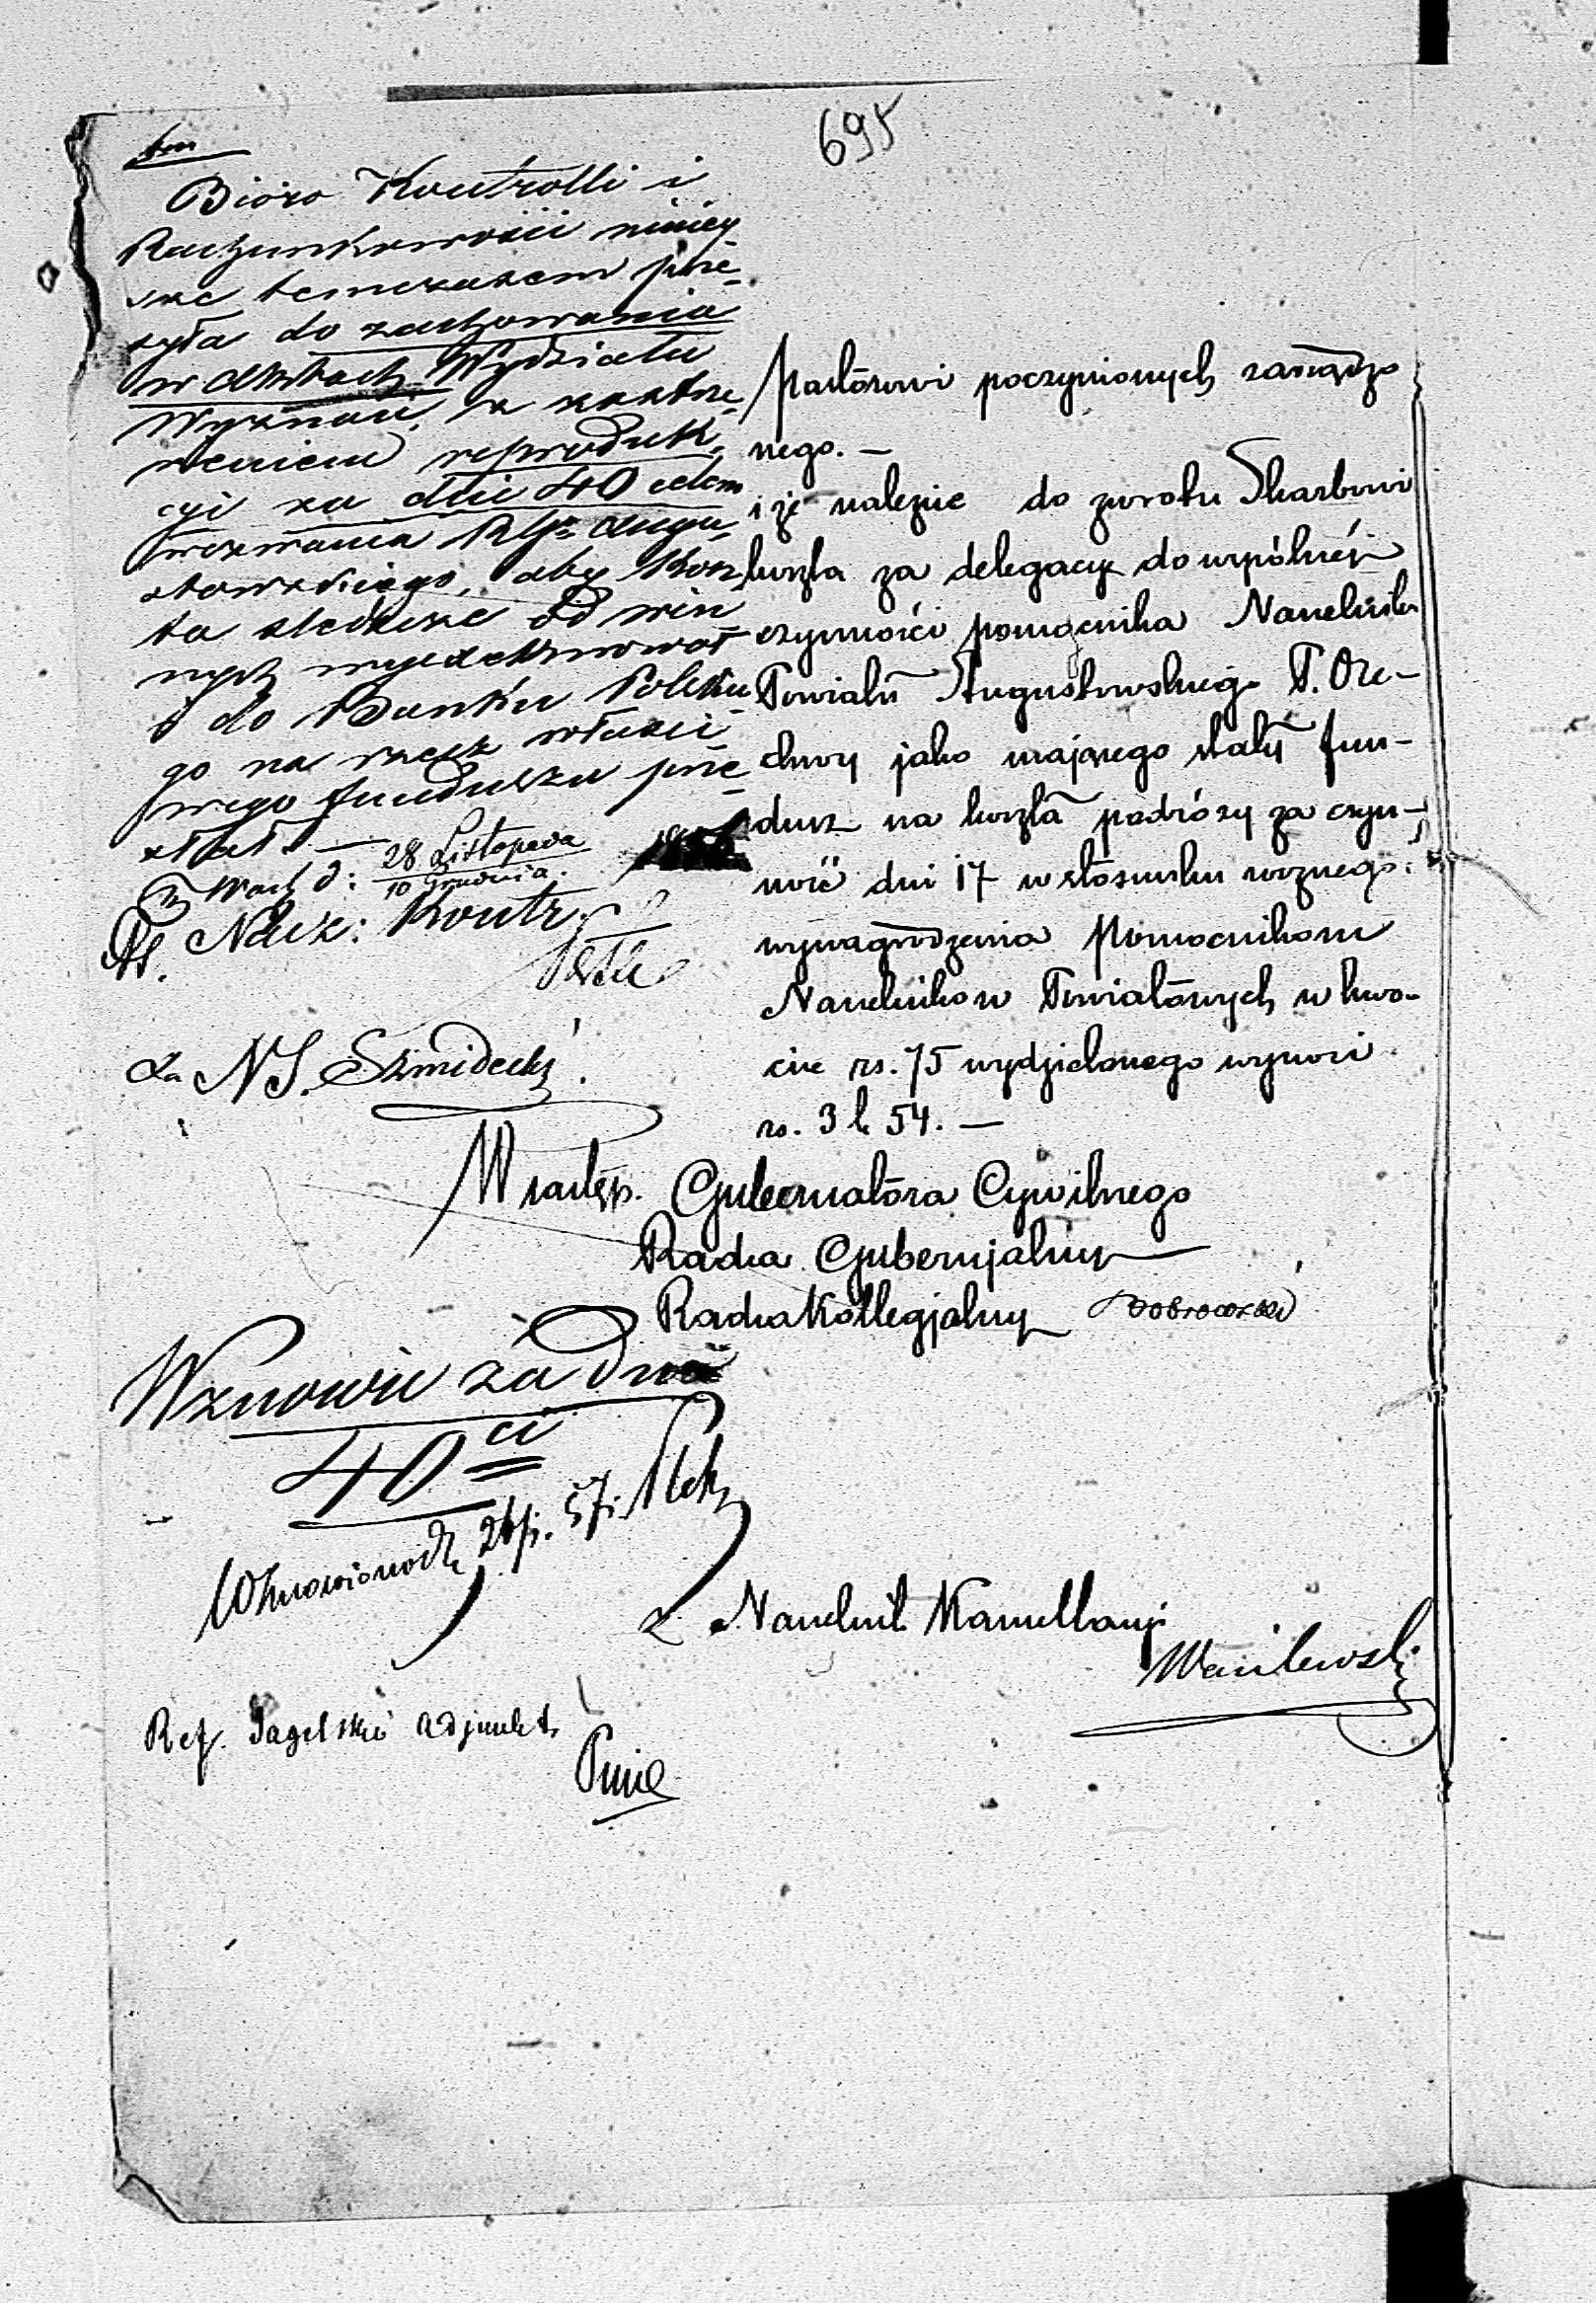 695
Bióro Kontrolli i
Rachunkowości niniey
sze temczasem prze-
syła do zachowania
w aktach Wydziału
Wyznań, z zastrze-
żeniem reproduk-
cyi za dni 40 celem
wezwania Rządu Augu-
stowskiego, aby kosz-
ta śledcze od win
nych wyexekwował
i do Banku Polskie-
go na rzecz właści
wego funduszu prze-
słał. —
W Warsz d: 28 Listopada
10 Grudnia.
Nacz: Kontr
za NS. Szmidecki
Pastorowi poczynionych zarządzo
nego. —
i że należnie do zwrotu Skarbowi
koszta za delegacye do wspólnéj
czynności pomocnika Naczelnika
Powiatu Augustowskiego P. Orze-
chwy jako mającego stały fun-
dusz na koszta podróży za czyn-
ność dni 17 w stosunku roznego
wynagrodzenia Pomocnikom
Naczelników Powiatowych w kwo-
cie rs. 75 wydzielonego wynosi
rs. 3 k 54. —
W zastęp. Gubernatora Cywilnego
Radca Gubernjalny
Radca Kollegjalny
Wznowić za dni
40ci
Wznowiono d. 26/1. 57.
z. Naczelnik Kancellaryi
Wasilewski
Ref. Jagelski Adjunkt